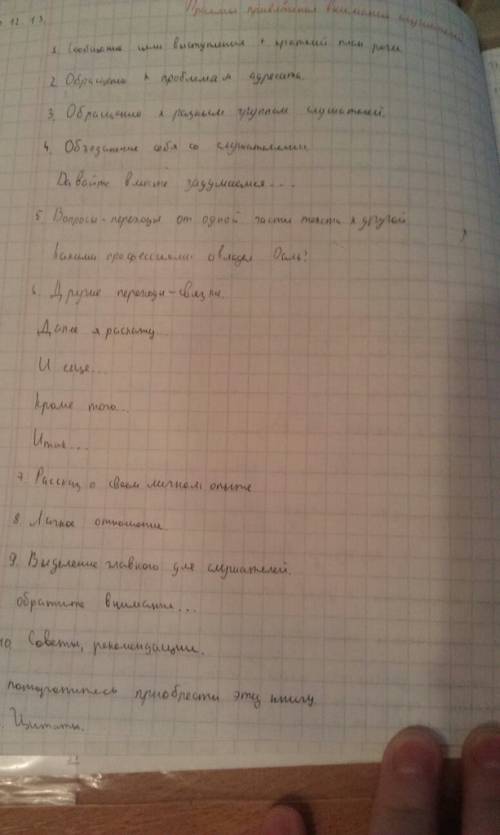 12. 13. Приёмы привлечения внимания слушателей
1. Сообщение или выступления + краткий план речи
2. Обращение к проблемам адресата.
3. Обращение к разным группам слушателей.
4. Объединение себя со слушателями
Давайте вместе задумаемся...
5. Вопросы-переходы от одной части текста к другой
Какими профессиями овладел Даль?
6. Другие переходы-связки.
Далее я расскажу...
И еще...
Кроме того...
Итак...
7. Рассказ о своем личном опыте
8. Личное отношение
9. Выделение главного для слушателей.
обратите внимание...
10. Советы, рекомендации.
поторопитесь приобрести эту книгу.
Цитаты.